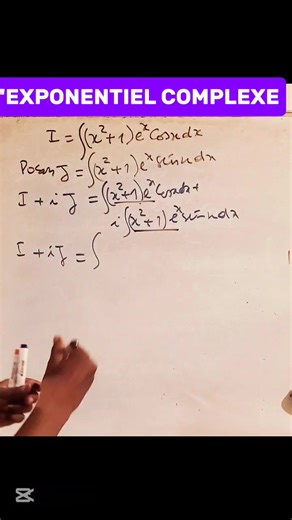 "EXPONENTIEL COMPLEXE
I = ∫(x²+1)eˣcosxdx
Posons J = ∫(x²+1)eˣsinxdx
I + iJ = ∫(x²+1)eˣcosxdx+
i∫(x²+1)eˣsinxdx
I + iJ = ∫